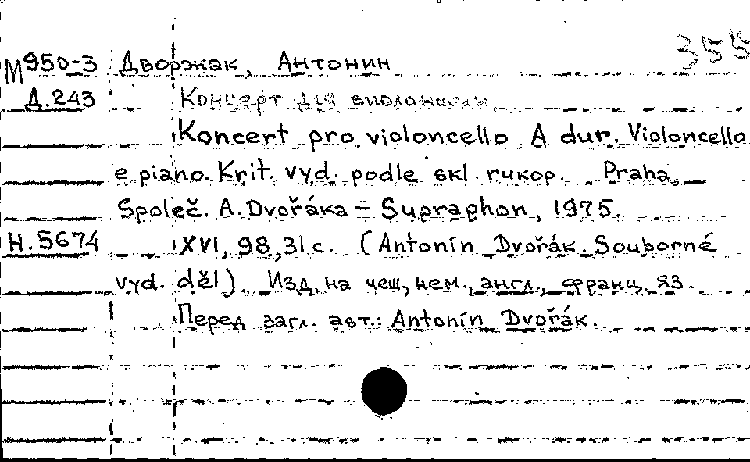 355
М950-3 Дворжак, Антонин
Д.243 Концерт для виолончели
Koncert pro violoncello A dur. Violoncello
e piano. Krit. vyd. podle skl rukop. Praha,
Společ. A. Dvořáka - Supraphon, 1975.
Н.5674 XVI, 98, 31 с. (Antonín Dvořák. Souborné
vyd. děl). Изд. на чеш, нем., англ., франц. яз
Перед загл. авт.: Antonín Dvořák.